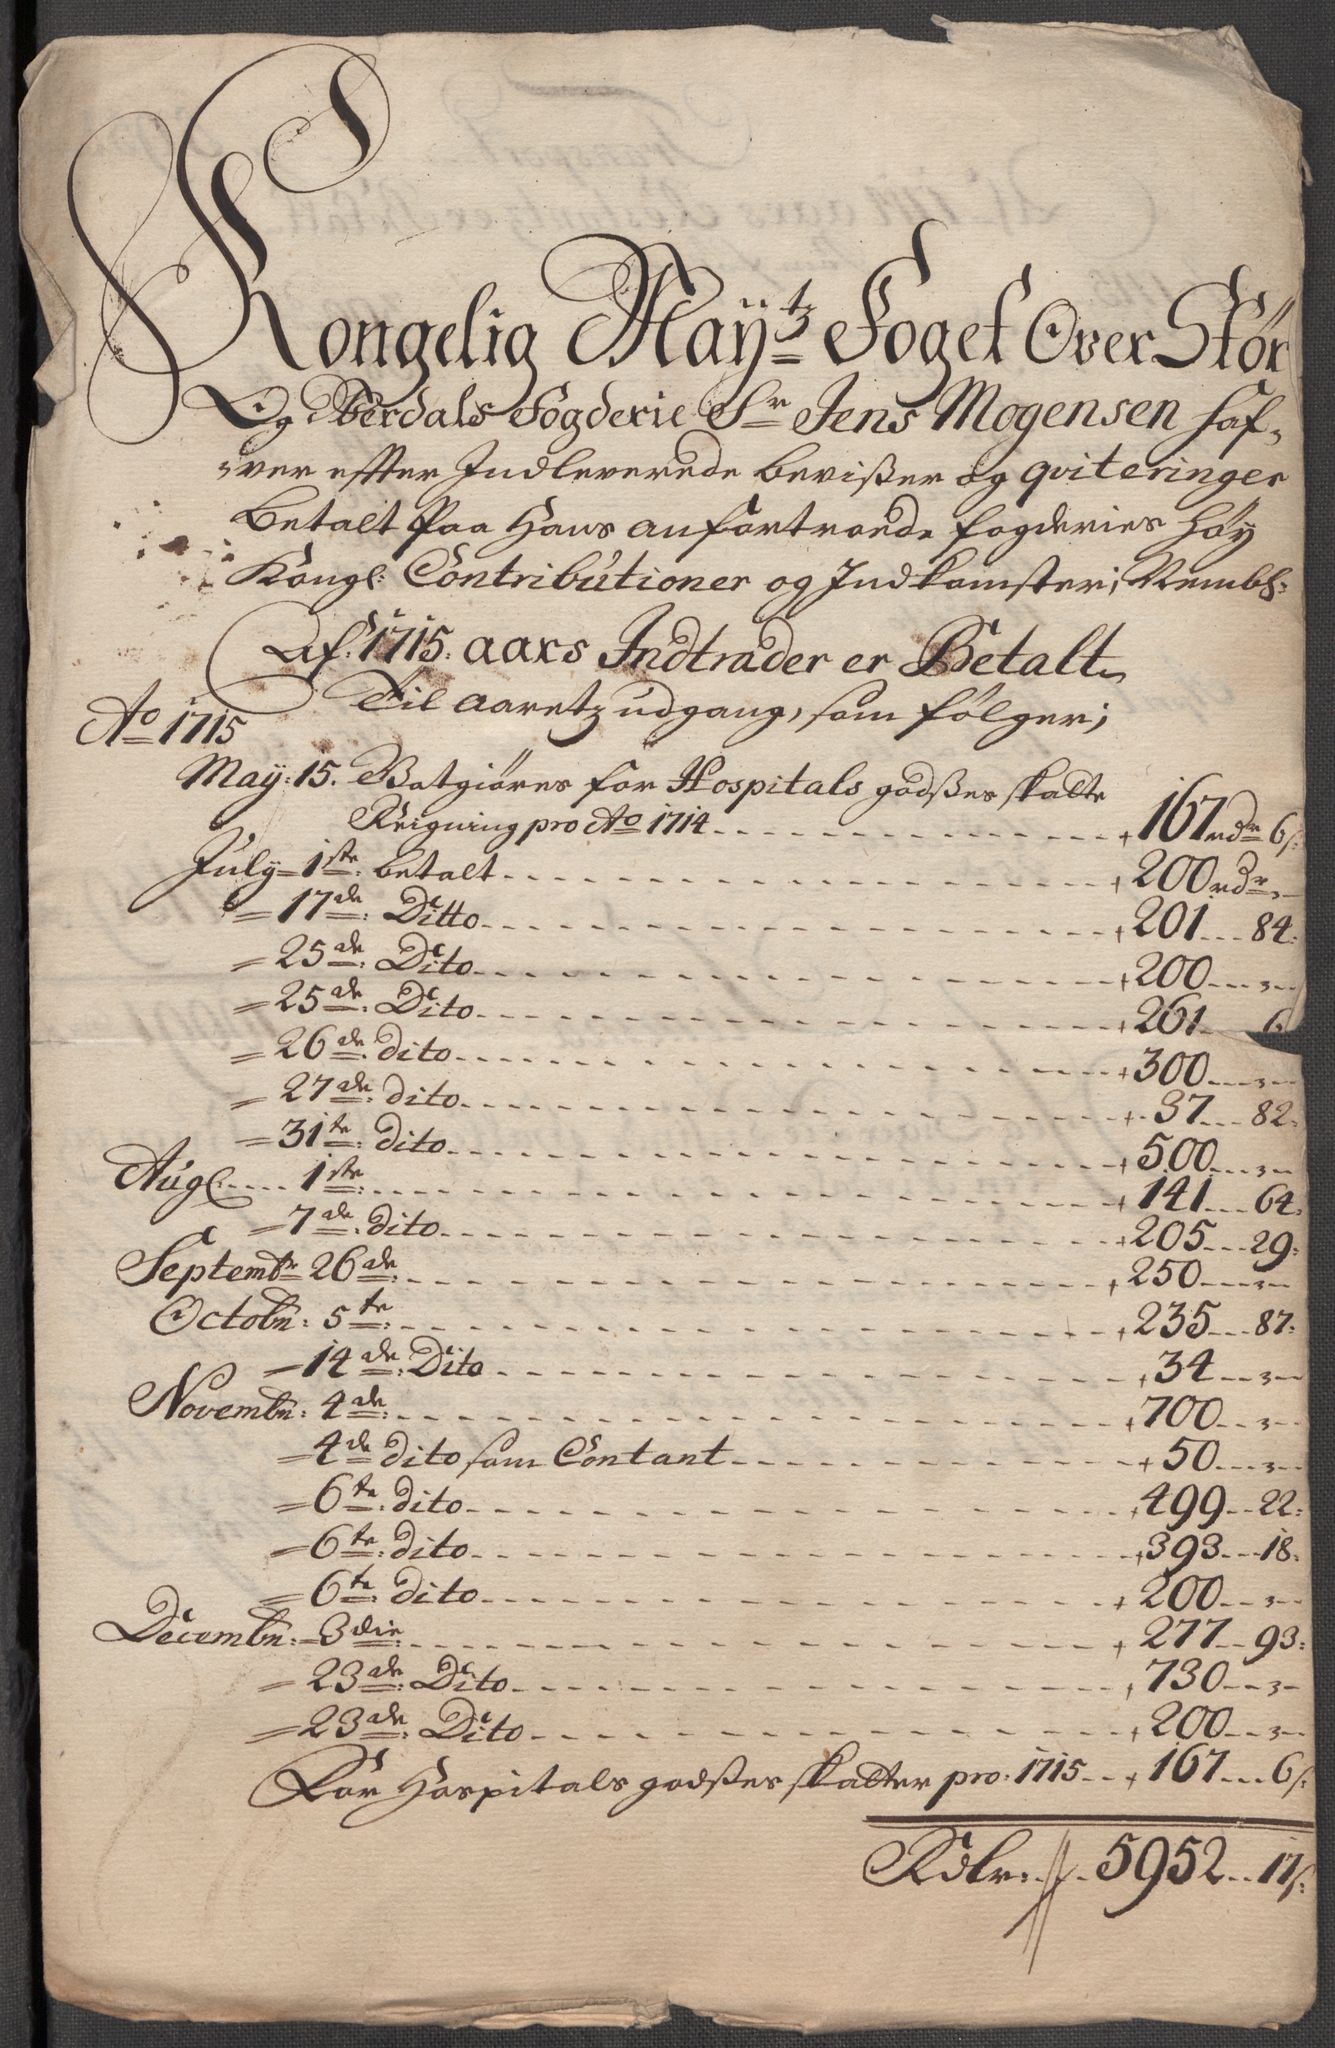 Kongelig Maÿtz Foget Over Stør
Og Werdals Fogderie Sr Jens Mogensen haf-
wer efter Indleverede bevißer og qviteringer
Betalt Paa Hans anfortroede fogderies høy
Kongl: Contributioner og Indkomster; Nembl:
Af 1715. aars Indtræder er Betalt
Til aaretz udgang, som følger;
Ao 1715
May: 15. Botgiøres for Hospitals godßes skatte
Reigning pro Ao 1714 167 rdr 6 s:
July 1ste: betalt 200 rdr
= 17de: Ditto 201 84:
= 25de: Dito 200
= 25de: Dito 261 6
= 26de: dito 300
= 27de: dito 37 82:
= 31te: dito 500
Aug: 1ste: 141 64:
= 7de: dito 205 29:
Septembr 26de: 250
Octobr: 5te: 235 87:
= 14de: Dito 34
Novembr: 4de: 700
= 4de dito som Contant 50
= 6te: dito 499 22:
= 6te: dito 393 18:
= 6te: dito 200
Decembr: 3die: 277 93:
= 23de: Dito 730
= 23de: Dito 200
For Hospitals godßes skatter pro: 1715 167 6 s:
Rdlr: 5952 17 s: